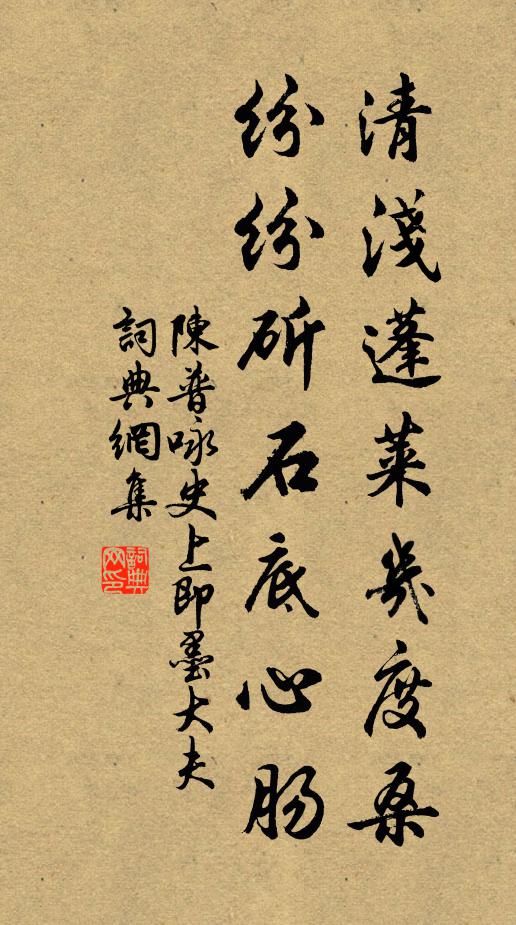 清淺蓬萊幾度桑
紛紛斫石底心腸
陳普咏史上即墨大夫
詞典網集
詞典
网印